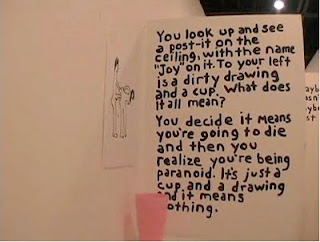 You look up and see
a post-it on the
ceiling, with the name
"Joy" on it. To your left
is a dirty drawing
and a cup. What does
it all mean?
You decide it means
you're going to die
and then you
realize you're being
paranoid. It's just a
cup and a drawing
and it means
nothing.